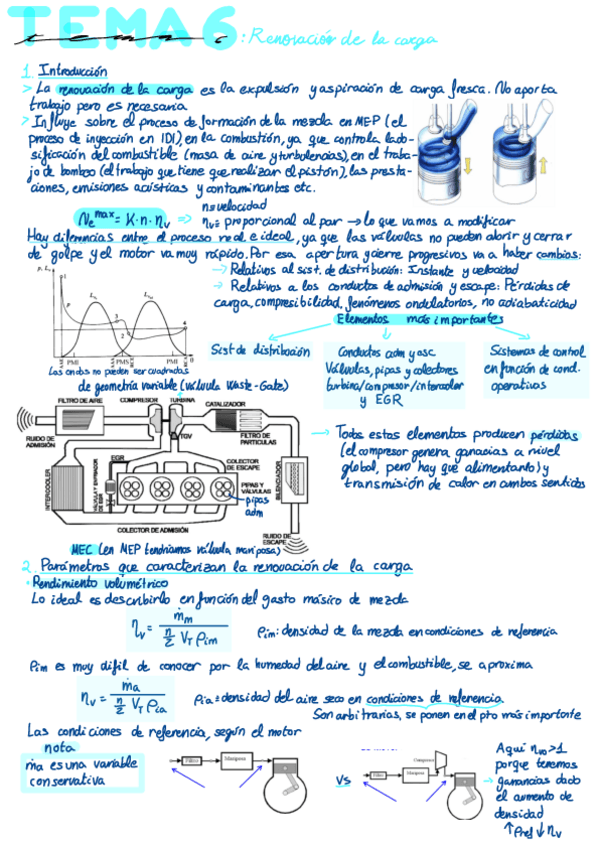 TEMA 6: Renovación de la carga
1. Introducción
> La renovación de la carga es la expulsión y aspiración de carga fresca. No aporta
trabajo pero es necesaria
> Influye sobre el proceso de formación de la mezcla en MEP (el
proceso de inyección en IDI), en la combustión, ya que controla la do-
sificación del combustible (masa de aire y turbulencias), en el traba-
jo de bombeo (el trabajo que tiene que realizar el pistón), las presta-
ciones, emisiones acústicas y contaminantes etc.
n≡velocidad
Ne max = K·n·ηv => ηv≡ proporcional al par → lo que vamos a modificar
Hay diferencias entre el proceso real e ideal, ya que las válvulas no pueden abrir y cerrar
de golpe y el motor va muy rápido. Por esa apertura y cierre progresivos va a haber cambios:
→ Relativos al sist. de distribución: Instante y velocidad
→ Relativos a los conductos de admisión y escape: Pérdidas de
carga, compresibilidad, fenómenos ondulatorios, no adiabaticidad
Elementos más importantes
Sist de distribución
Conductos adm y asc
Válvulas, pipas y colectores
turbina/compresor/intercooler
y EGR
Sistemas de control
en función de cond.
operativas
PMI PMS PMI
Las ondas no pueden ser cuadradas
de geometría variable (válvula Waste-Gate)
FILTRO DE AIRE
COMPRESOR
TURBINA
CATALIZADOR
RUIDO DE
ADMISIÓN
TGV
FILTRO DE
PARTÍCULAS
EGR
COLECTOR
DE ESCAPE
INTERCOOLER
PIPAS Y
VÁLVULAS
pipas
adm
SILENCIADOR
COLECTOR DE ADMISIÓN
RUIDO DE
ESCAPE
→ Todos estos elementos producen pérdidas
(el compresor genera ganacias a nivel
global, pero hay que alimentarlo) y
transmisión de calor en ambos sentidos
MEC (en MEP tendríamos válvula mariposa)
2. Parámetros que caracterizan la renovación de la carga
· Rendimiento volumétrico
Lo ideal es describirlo en función del gasto másico de mezcla
ηv = ṁm / (n/2 VT ρim)
ρim: densidad de la mezcla en condiciones de referencia
ρim es muy difil de conocer por la humedad del aire y el combustible, se aproxima
ηv = ṁa / (n/2 VT ρia)
ρia≡densidad del aire seco en condiciones de referencia
Son arbitrarias, se ponen en el pto más importante
Las condiciones de referencia, según el motor
nota
ṁa es una variable
conservativa
Filtro
Mariposa
VS
Filtro
Mariposa
Compresor
Aqui ηvo>1
porque tenemos
ganancias dado
el aumento de
densidad
↑ρref ↓ηv